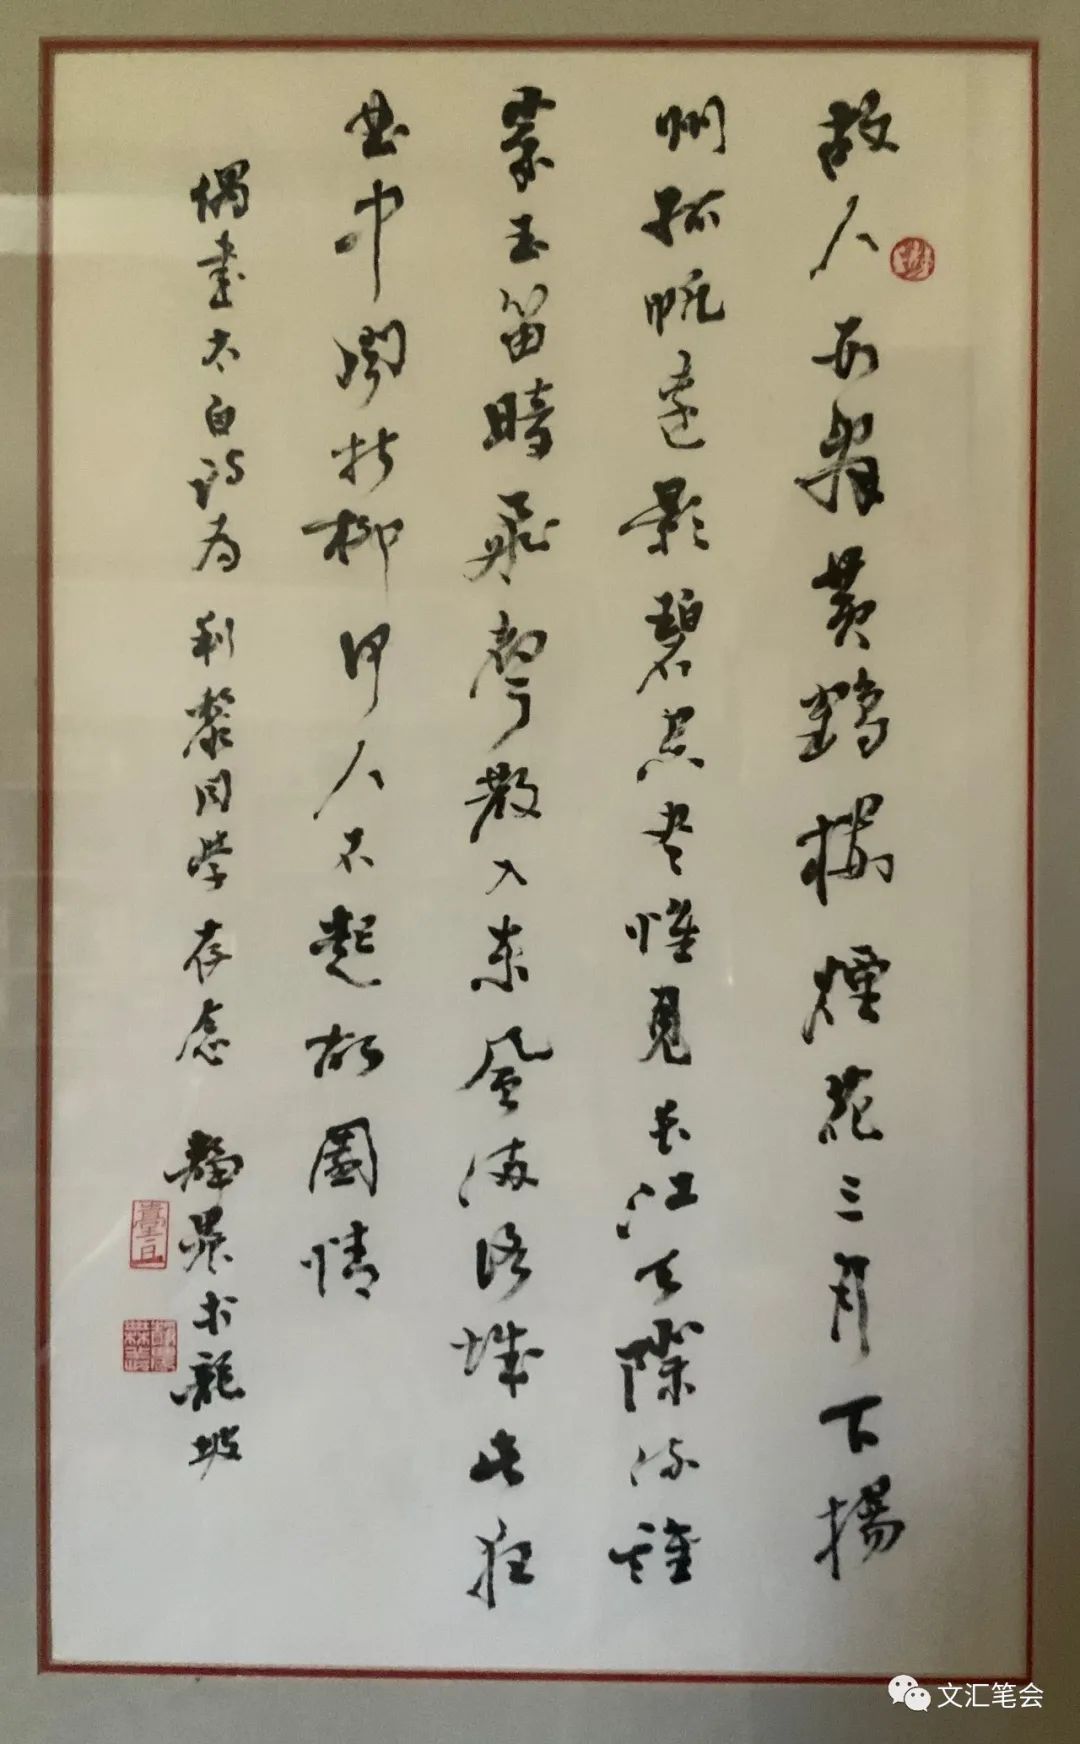 故人西辭黃鶴樓煙花三月下揚
州孤帆遠影碧空盡惟見長江天際流誰
家玉笛暗飛聲散入東風滿洛城此夜
曲中聞折柳何人不起故園情
偶書太白詩為利黎同學存念 靜農於龍坡
文汇笔会